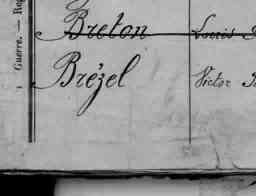 Guerre. —
Breton Louis
Brézel Victor